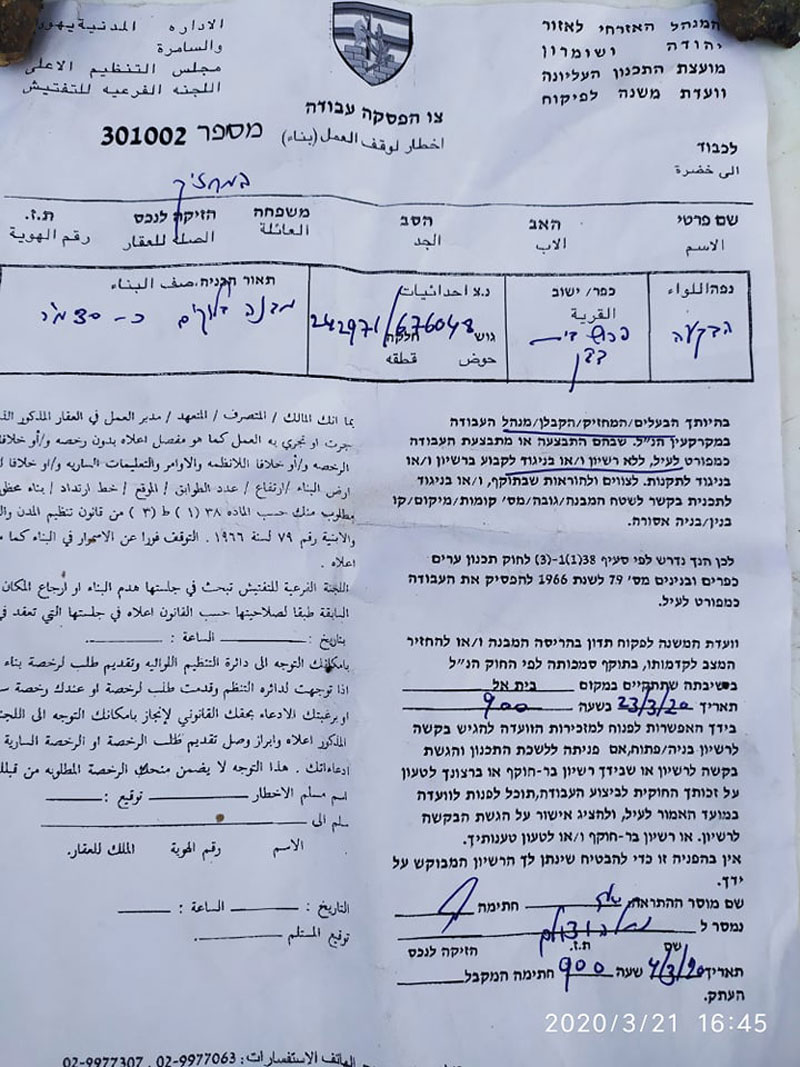 המנהל האזרחי לאזור
יהודה ושומרון
מועצת התכנון העליונה
וועדת משנה לפיקוח
الاداره المدنية يهو
والسامرة
مجلس التنظيم الاعلى
اللجنه الفرعيه للتفتيش
צו הפסקה עבודה
اخطار لوقف العمل (بناء)
מספר 301002
לכבוד
الى حضرة
המחזיק
שם פרטי האב הסב משפחה הזיקה לנכס ת.ז.
الاسم الاب الجد العائلة الصلة للعقار رقم الهوية
נפה اللواء
הבקעה
כפר/ ישוב
القرية
נ.צ احداثيات
242971/676048
גוש חלקה
حوض قطقه
תאור הבניה, صف البناء
מבנה בלוקים כ- 30 מ"ר
בהיותך הבעלים/המחזיק/הקבלן/מנהל העבודה
במקרקעין הנ"ל. שבהם התבצעה או מתבצעת העבודה
כמפורט לעיל, ללא רשיון ו/או בניגוד לקבוע ברשיון ו/או
בניגוד לתקנות. לצווים ולהוראות שבתוקף, ו/או בניגוד
לתכנית בקשר לשטח המבנה/גובה/מס' קומות/מיקום/קו
בנין/בניה אסורה.
לכן הנך נדרש לפי סעיף 38(1)-(3) לחוק תכנון ערים
כפרים ובנינים מס' 79 לשנת 1966 להפסיק את העבודה
כמפורט לעיל.
וועדת המשנה לפקוח תדון בהריסה המבנה ו/או להחזיר
המצב לקדמותו, בתוקף סמכותה לפי החוק הנ"ל
בישיבתה שתתקיים במקום בית אל
תאריך 23/3/20 בשעה 900
בידך האפשרות לפנות למזכירות הוועדה להגיש בקשה
לרשיון בניה/פתוח, אם פניתה ללשכת התכנון והגשת
בקשה לרשיון או שבידך רשיון בר-תוקף או ברצונך לטעון
על זכותך החוקית לביצוע העבודה, תוכל לפנות לוועדה
במועד האמור לעיל, ולהציג אישור על הגשת הבקשה
לרשיון. או רשיון בר-תוקף ו/או לטעון טענותיך.
אין בהפניה זו כדי להבטיח שינתן לך הרשיון המבוקש על
ידך.
שם מוסר ההתראה חתימה
נמסר ל
שם ת.ז. הזיקה לנכס
תאריך 4/3/20 שעה 900 חתימה המקבל
העתק.
بما انك المالك / المتصرف / المتعهد / مدير العمل في العقار المذكور الذ
جرت او تجري به العمل كما هو مفصل اعلاه بدون رخصه و/أو خلافا
الرخصه و/أو خلافا اللانظمه والاوامر والتعليمات الساريه و/او خلافا ل
ارض البناء /ارتفاع / عدد الطوابق / الموقع / خط ارتداد / بناء محظو
مطلوب منك حسب الماده ٣٨ (١) ط (٣) من قانون تنظيم المدن وال
والابنية رقم ٧٩ لسنة ١٩٦٦ . التوقف فورا عن الاسمرار في البناء كما
اعلاه .
اللجنة الفرعية للتفتيش تبحث في جلستها هدم البناء او أرجاع المكان
السابقة طبقا لصلاحيتها حسب القانون اعلاه في جلستها التي تعقد في
بتاريخ : الساعة :
بامكانك التوجه الى دائرة التنظيم اللوائيه وتقديم طلب لرخصة بناء
اذا توجهت لدائره التنظم وقدمت طلب لرخصة او عندك رخصة س
او برغبتك الادعاء بحقك القانوني لإنجاز بامكانك التوجه الى اللجن
المذكور اعلاه وابراز وصل تقديم طلب الرخصة او الرخصة السارية
ادعاءاتك . هذا التوجه لا يضمن منحك الرخصة المطلوبه من قبلك
اسم مسلم الاخطار توقيع :
سلم الى
الاسم رقم الهوية الملك للعقار.
التاريخ : الساعة :
توقيع المستلم
الهاتف الاستفسارات : 02-9977063 ,02-9977307
2020/3/21 16:45